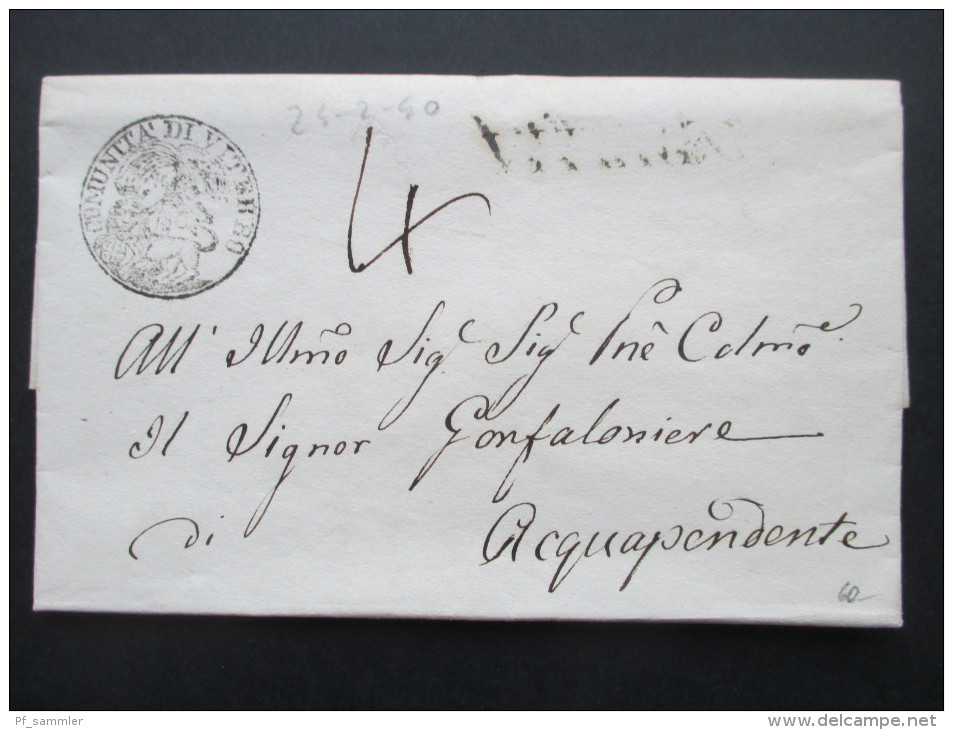 COMUNITÀ DI VITERBO
4
All' Illmo Sigr Sigr Pne Colmo
Il Signor Gonfaloniere
di Acquapendente
60-
Pf_sammler
www.delcampe.net